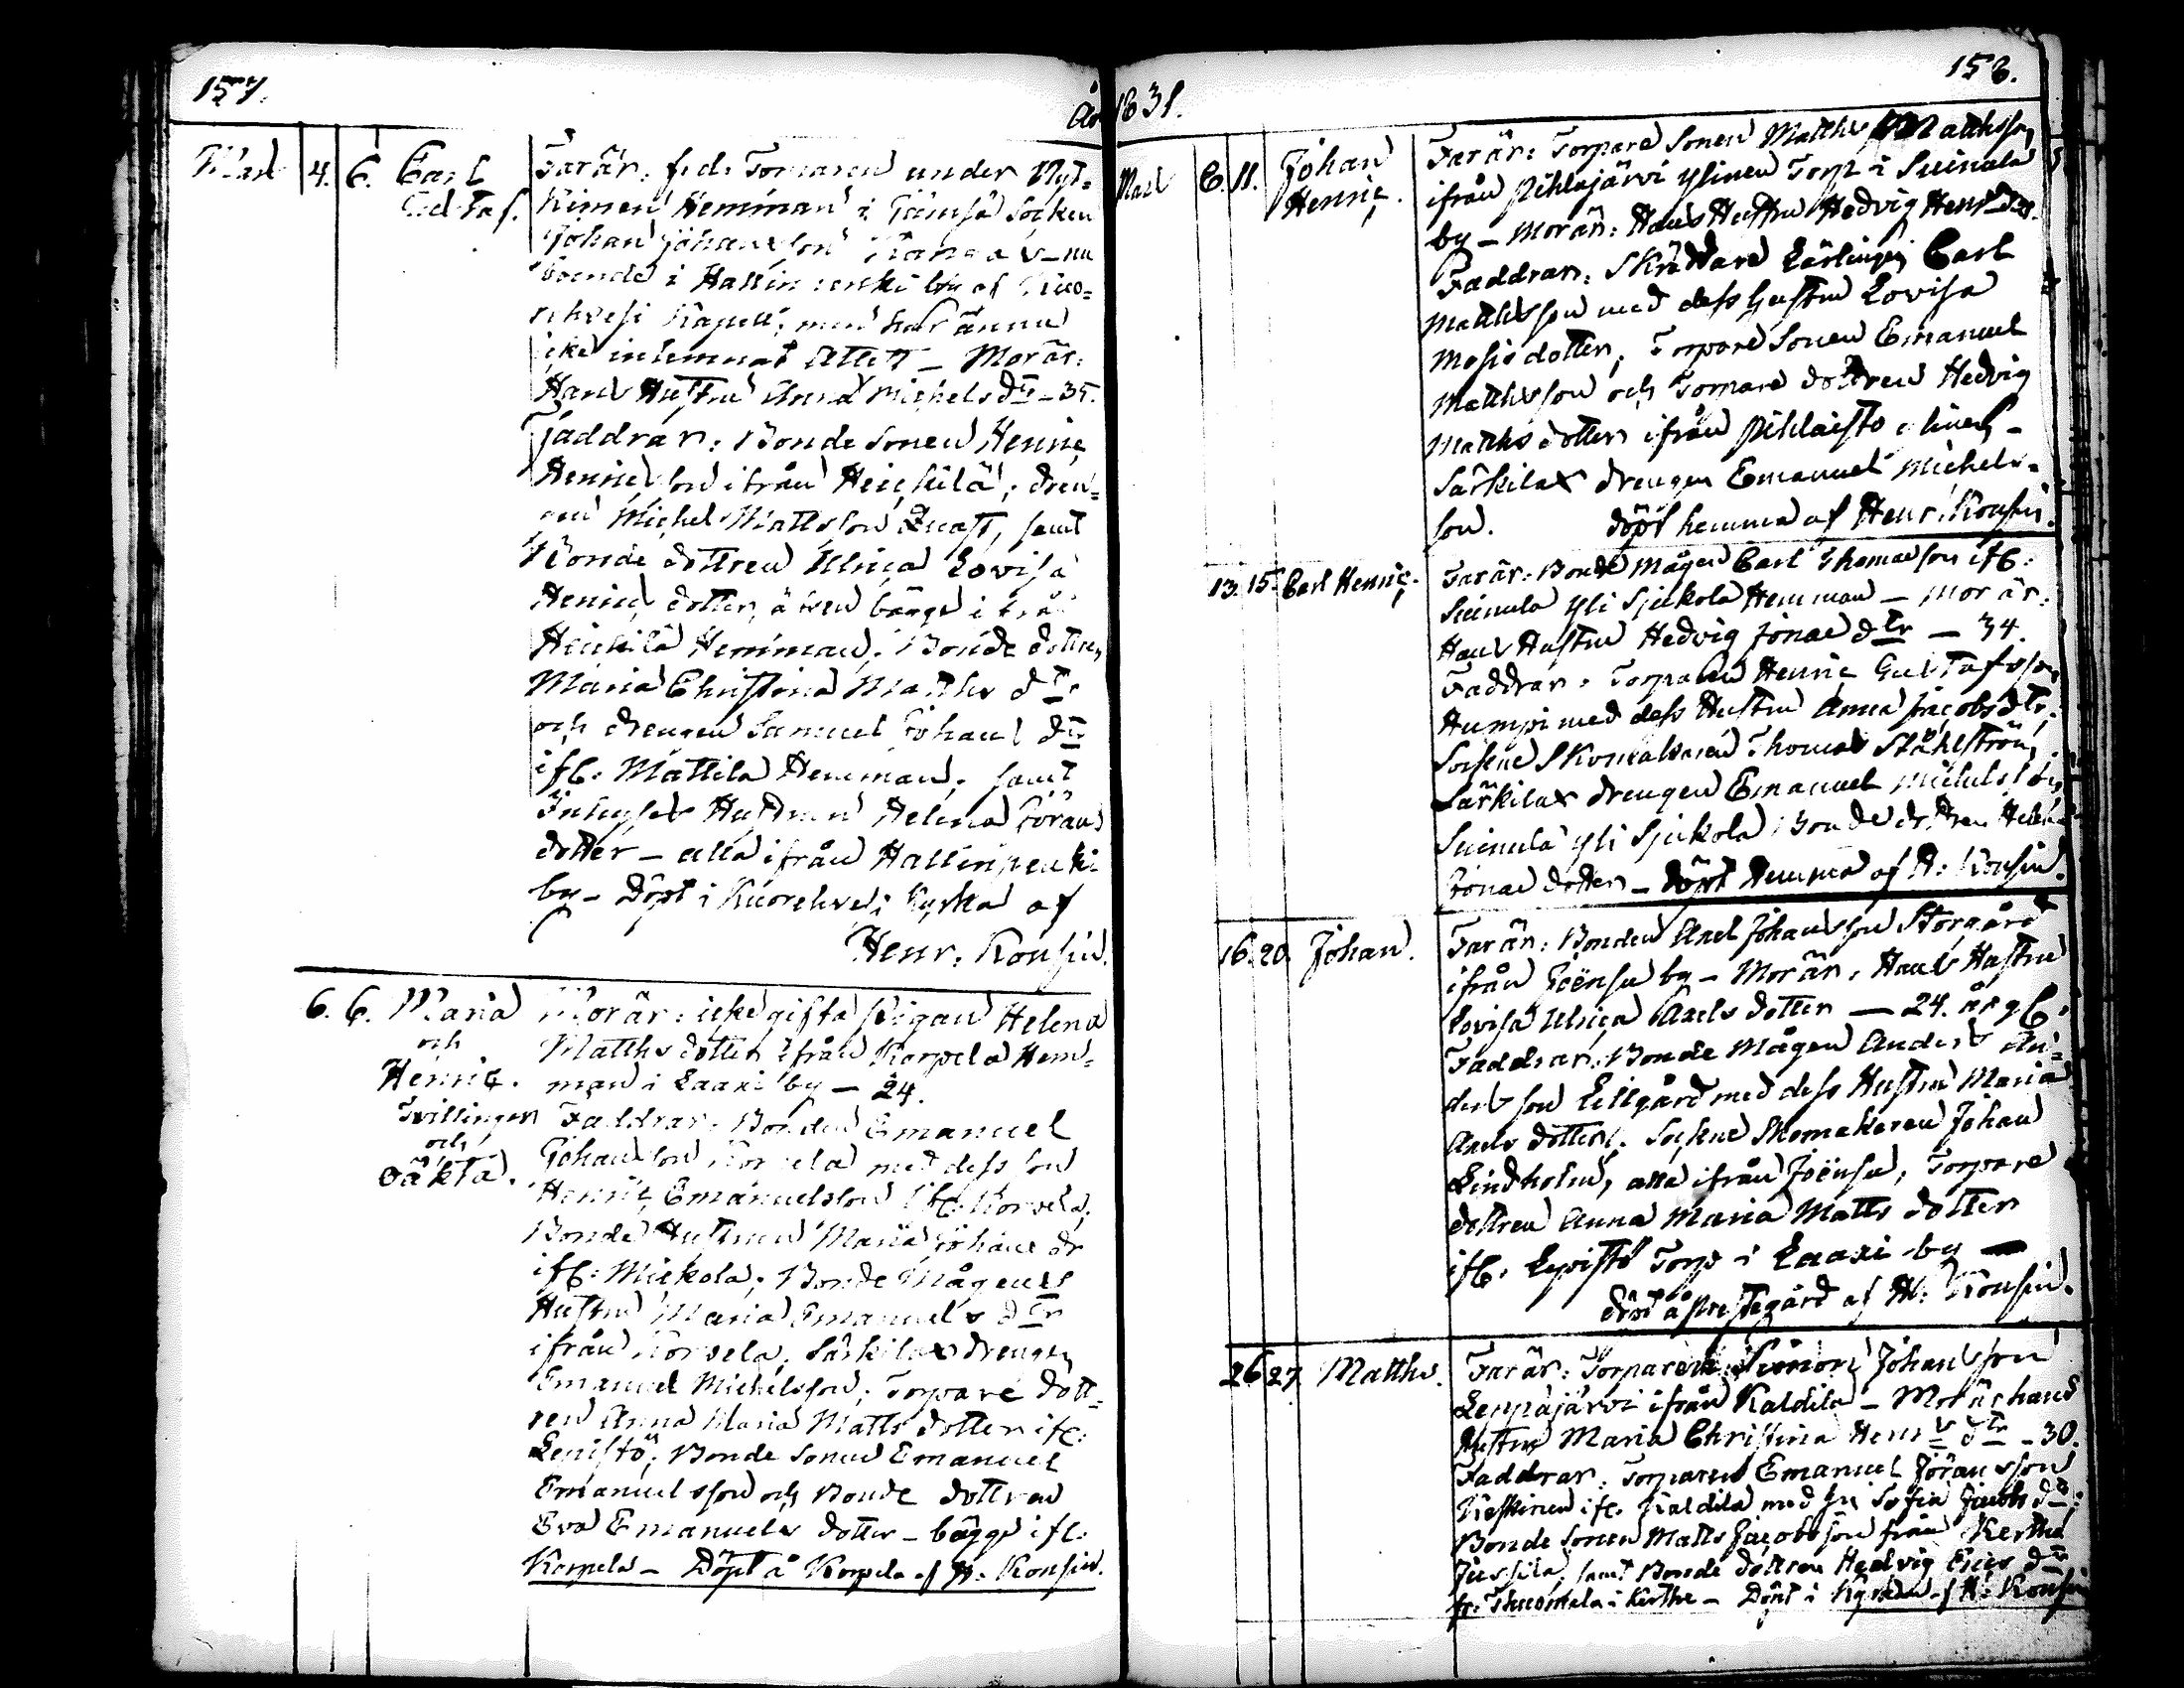 157.
År
Mart 4. 6. Carl
Gustaf.
Far är: f. d. Torparen under Nyt=
kimen Hemman i Jämsä Socken
Johan Johansson Kangas - nu
boende i Hallinpenki by af Kuo=
rehvesi Kapell; men har ännu
icke inlemnat Attest - Mor är:
Hans Hustru Anna Michels dr - 35.
Faddrar: Bonde Sonen Henric
Henricsson ifrån Heickilä; dren=
gen Michel Mattsson Quast, samt
Bonde dottren Ulrica Lovisa
Henrics dotter, äfven bägge ifrån
Heickilä Hemman; Bonde dottren
Maria Christina Matths dtr
och drengen Samuel Johans dtr
ifr: Mattila Hemman; samt
Inhyses Hustrun Helena Göran
dotter - alla ifrån Hallinpenki
by - Döpt i Kuorehvesi Kyrka af
Henr. Konsin.
6. 6. Maria
och
Henric.
Tvillingar
och
oäkta.
Mor är: icke gifta Pigan Helena
Matths dotter ifrån Korpela Hem=
man i Laaxi by - 24.
Faddrar: Bonden Emanuel
Johansson Korpela med dess son
Henric Emanuelsson ifr: Korpela;
Bonde Hustrun Maria Johans dr
ifr: Mickola; Bonde Mågens
Hustru Maria Emanuels dtr
ifrån Korpela; Särkilax drengen
Emanuel Michelsson; Torpare dott=
ren Anna Maria Matts dotter ifr:
Lepistö; Bonde Sonen Emanuel
Emanuelsson och Bonde dottren
Eva Emanuels dotter - bägge ifr:
Korpela - Döpt å Korpela af H: Konsin.
158.
1831.
Mart 8. 11. Johan
Henric.
Far är: Torpare Sonen Matths Matthsson
ifrån Pihlajärvi ylinen Torp i Suinula
by - Mor är: Hans Hustru Hedvig Henr dtr.
Faddrar: Skräddare Lärlingen Carl
Matthsson med dess Hustru Lovisa
Mosis dotter; Torpare Sonen Emanuel
Matthsson och Torpare dottren Hedvig
Matths dotter ifrån Pihlaisto
Särkilax drengen Emanuel Michels=
son. Döpt hemma af Henr. Konsin.
13. 15. Carl Henric.
Far är: Bonde Mågen Carl Thomasson ifr:
Suinula yli Sjukola Hemman - Mor är:
Hans Hustru Hedvig Jonae dtr - 34.
Faddrar: Torparen Henric Gustafsson
Humpi med dess Hustru Anna Jacobs dtr;
Sockne Skomakaren Thomas Ståhlström,
Särkilax drengen Emanuel Michelsson,
Suinula yli Sjukola Bonde dottren Helena
Jonae dotter - Döpt hemma af H: Konsin.
16. 20. Johan.
Far är: Bonden Axel Johansson Storgård
ifrån Joënsu by - Mor är: Hans Hustru
Lovisa Ulrica Axels dotter - 24. år gl.
Faddrar: Bonde Mågen Anders An=
dersson Lillgård med dess Hustru Maria
Axels dotter; Sockne Skomakaren Johan
Lindholm, alla ifrån Joënsu; Torpare
dottren Anna Maria Matts dotter
ifr: Lepistö Torp i Laaxi by
döpt å Prestegård af H: Konsin.
26. 27. Matths.
Far är: Torparen Simon Johansson
Leppäjärvi ifrån Kaldila - Mor är hans
Hustru Maria Christina Henrs dtr - 30.
Faddrar: Torparen Emanuel Göransson
Keskinen ifr. Kaldila med hu Sofia Jacobs dr;
Bonde Sonen Matts Jacobsson från Kerthe
Jussila, samt Bonde dottren Hedvig Erics dr
fr. Thuomala i Kerthe - Döpt i Kyrkan af H: Konsin